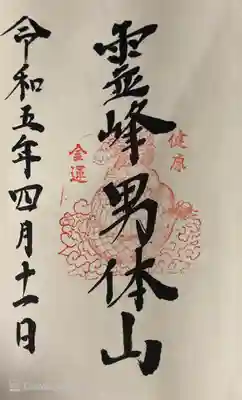 健康
靈峰男体山
金運
令和五年四月十一日